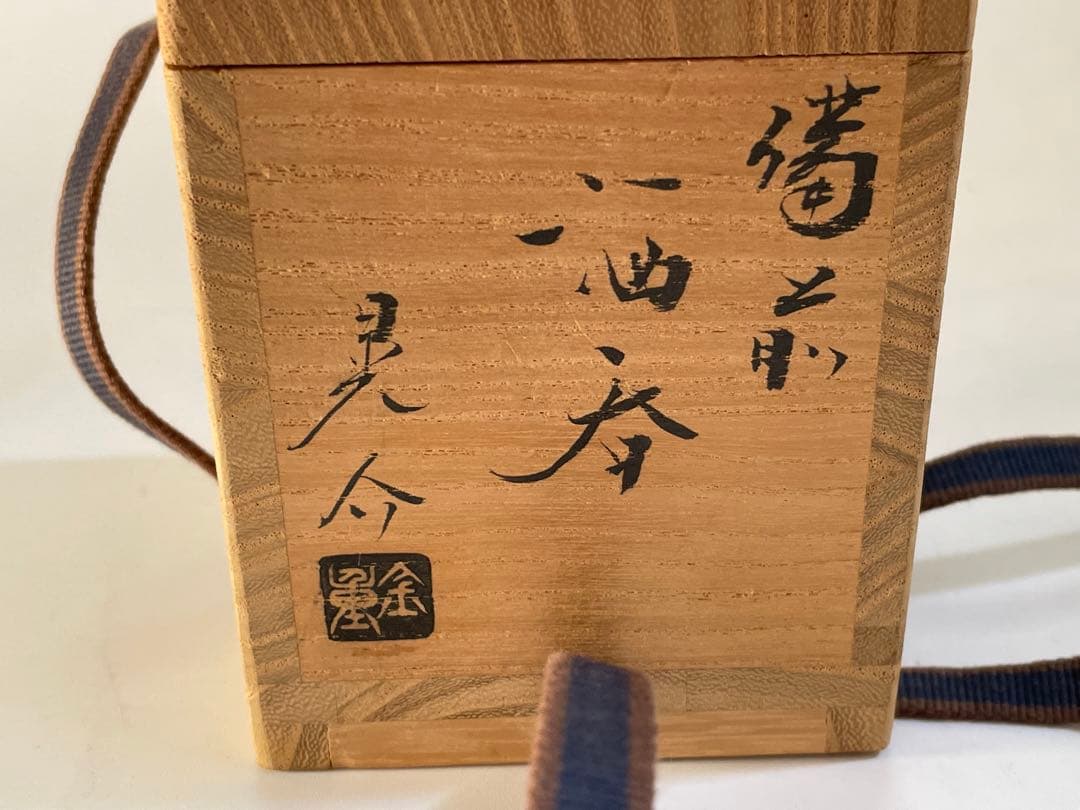 備前
酒呑
晃介
金重